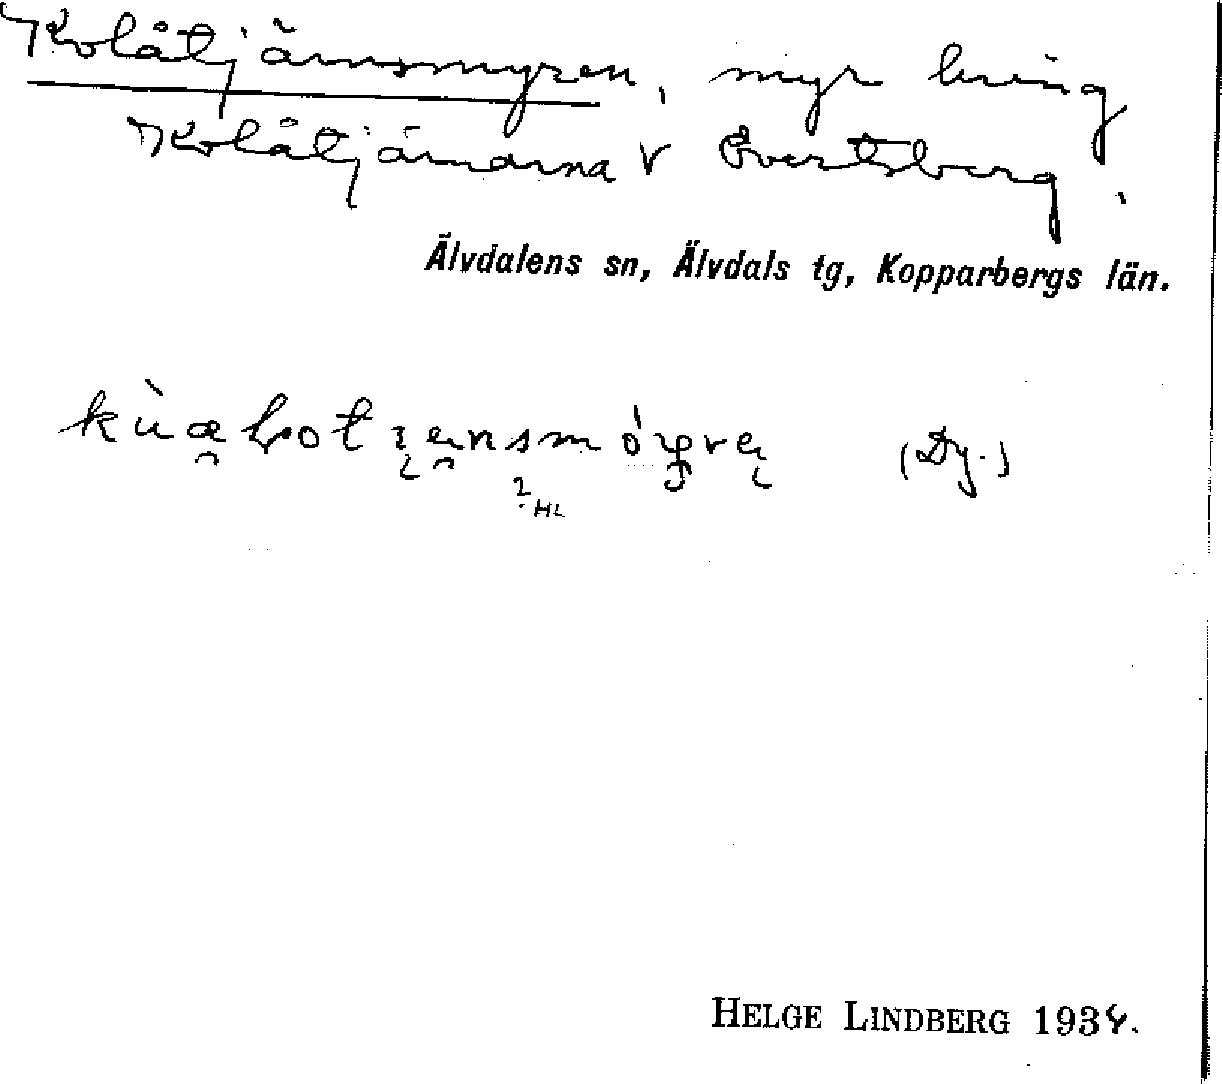 Kolåtjärnsmyren, myr kring
Kolåtjärnarna V Evertsberg.
Älvdalens sn, Älvdals tg, Kopparbergs län.
(Dy.)
? HL
HELGE LINDBERG 1934.